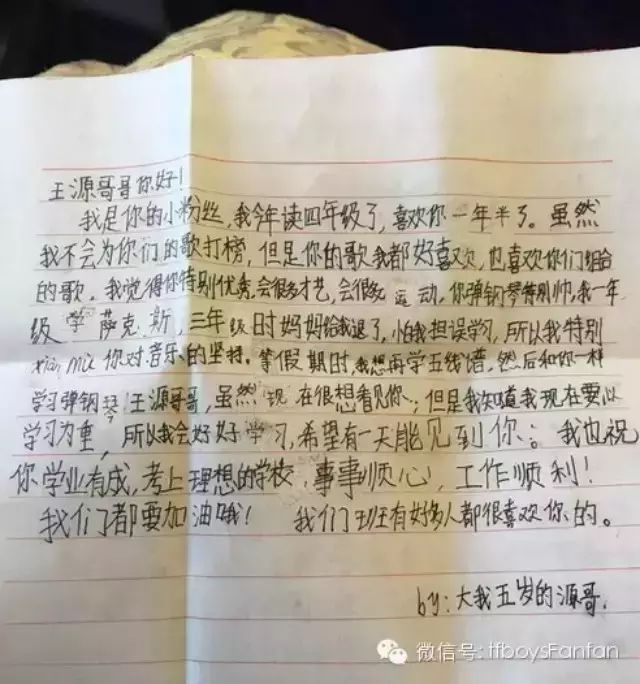 王源哥哥你好!
我是你的小粉丝,我今年读四年级了,喜欢你一年半了。虽然
我不会为你们的歌打榜,但是你的歌我都好喜欢,也喜欢你们组合
的歌。我觉得你特别优秀,会很多才艺,会很多运动,你弹钢琴特别帅,我一年
级学萨克斯,三年级时妈妈给我退了,怕我担误学习,所以我特别
xian mu 你对音乐的坚持。等假期时,我想再学五线谱,然后和你一样
学习弹钢琴,王源哥哥,虽然现在很想看见你;但是我知道我现在要以
学习为重,所以我会好好学习,希望有一天能见到你;我也祝
你学业有成,考上理想的学校,事事顺心,工作顺利!
我们都要加油哦! 我们班有好多人都很喜欢你的。
by:大我五岁的源哥.
微信号: tfboysFanfan